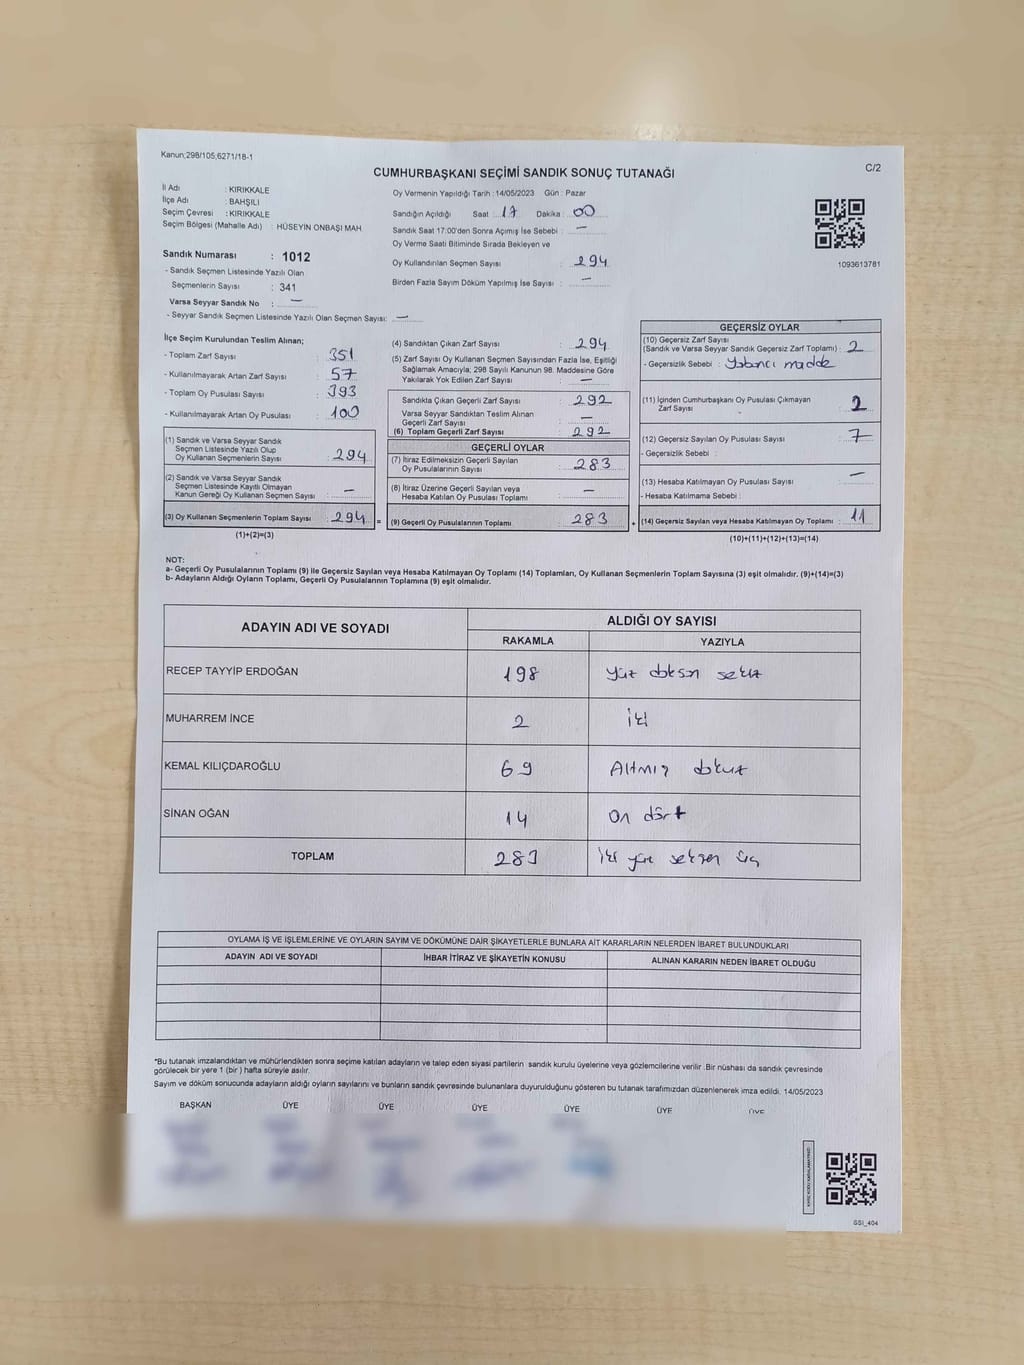 Kanun;298/105,6271/18-1
C/2
CUMHURBAŞKANI SEÇİMİ SANDIK SONUÇ TUTANAĞI
İl Adı : KIRIKKALE
İlçe Adı : BAHŞILI
Seçim Çevresi : KIRIKKALE
Seçim Bölgesi (Mahalle Adı) : HÜSEYİN ONBAŞI MAH.
Sandık Numarası : 1012
- Sandık Seçmen Listesinde Yazılı Olan
Seçmenlerin Sayısı : 341
Varsa Seyyar Sandık No : —
- Seyyar Sandık Seçmen Listesinde Yazılı Olan Seçmen Sayısı: —
Oy Vermenin Yapıldığı Tarih : 14/05/2023 Gün : Pazar
Sandığın Açıldığı Saat : 17 Dakika : 00
Sandık Saat 17:00'den Sonra Açımış İse Sebebi : —
Oy Verme Saati Bitiminde Sırada Bekleyen ve
Oy Kullandırılan Seçmen Sayısı : 294
Birden Fazla Sayım Döküm Yapılmış İse Sayısı : —
1093613781
İlçe Seçim Kurulundan Teslim Alınan;
- Toplam Zarf Sayısı : 351
- Kullanılmayarak Artan Zarf Sayısı : 57
- Toplam Oy Pusulası Sayısı : 393
- Kullanılmayarak Artan Oy Pusulası : 100
(1) Sandık ve Varsa Seyyar Sandık
Seçmen Listesinde Yazılı Olup
Oy Kullanan Seçmenlerin Sayısı : 294
(2) Sandık ve Varsa Seyyar Sandık
Seçmen Listesinde Kayıtlı Olmayan
Kanun Gereği Oy Kullanan Seçmen Sayısı : —
(3) Oy Kullanan Seçmenlerin Toplam Sayısı : 294 =
(1)+(2)=(3)
(4) Sandıktan Çıkan Zarf Sayısı : 294
(5) Zarf Sayısı Oy Kullanan Seçmen Sayısından Fazla İse, Eşitliği
Sağlamak Amacıyla; 298 Sayılı Kanunun 98. Maddesine Göre
Yakılarak Yok Edilen Zarf Sayısı : —
Sandıkta Çıkan Geçerli Zarf Sayısı : 292
Varsa Seyyar Sandıktan Teslim Alınan
Geçerli Zarf Sayısı : —
(6) Toplam Geçerli Zarf Sayısı : 292
GEÇERLİ OYLAR
(7) İtiraz Edilmeksizin Geçerli Sayılan
Oy Pusulalarının Sayısı : 283
(8) İtiraz Üzerine Geçerli Sayılan veya
Hesaba Katılan Oy Pusulası Toplamı : —
(9) Geçerli Oy Pusulalarının Toplamı : 283 +
GEÇERSİZ OYLAR
(10) Geçersiz Zarf Sayısı
(Sandık ve Varsa Seyyar Sandık Geçersiz Zarf Toplamı) : 2
- Geçersizlik Sebebi : Yabancı madde
(11) İçinden Cumhurbaşkanı Oy Pusulası Çıkmayan
Zarf Sayısı : 2
(12) Geçersiz Sayılan Oy Pusulası Sayısı : 7
- Geçersizlik Sebebi :
(13) Hesaba Katılmayan Oy Pusulası Sayısı : —
- Hesaba Katılmama Sebebi :
(14) Geçersiz Sayılan veya Hesaba Katılmayan Oy Toplamı : 11
(10)+(11)+(12)+(13)=(14)
NOT:
a- Geçerli Oy Pusulalarının Toplamı (9) ile Geçersiz Sayılan veya Hesaba Katılmayan Oy Toplamı (14) Toplamları, Oy Kullanan Seçmenlerin Toplam Sayısına (3) eşit olmalıdır. (9)+(14)=(3)
b- Adayların Aldığı Oyların Toplamı, Geçerli Oy Pusulalarının Toplamına (9) eşit olmalıdır.
ADAYIN ADI VE SOYADI ALDIĞI OY SAYISI
RAKAMLA YAZIYLA
RECEP TAYYİP ERDOĞAN 198 Yüz doksan sekiz
MUHARREM İNCE 2 İki
KEMAL KILIÇDAROĞLU 69 Altmış dokuz
SİNAN OĞAN 14 On dört
TOPLAM 283 İki yüz seksen üç
OYLAMA İŞ VE İŞLEMLERİNE VE OYLARIN SAYIM VE DÖKÜMÜNE DAİR ŞİKAYETLERLE BUNLARA AİT KARARLARIN NELERDEN İBARET BULUNDUKLARI
ADAYIN ADI VE SOYADI İHBAR İTİRAZ VE ŞİKAYETİN KONUSU ALINAN KARARIN NEDEN İBARET OLDUĞU
*Bu tutanak imzalandıktan ve mühürlendikten sonra seçime katılan adayların ve talep eden siyasi partilerin sandık kurulu üyelerine veya gözlemcilerine verilir .Bir nüshası da sandık çevresinde
görülecek bir yere 1 (bir ) hafta süreyle asılır.
Sayım ve döküm sonucunda adayların aldığı oyların sayılarını ve bunların sandık çevresinde bulunanlara duyurulduğunu gösteren bu tutanak tarafımızdan düzenlenerek imza edildi. 14/05/2023
BAŞKAN ÜYE ÜYE ÜYE ÜYE ÜYE ÜYE
SSI_404